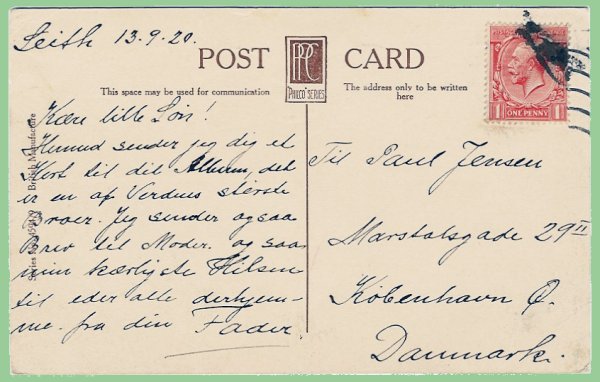 Leith 13.9.20.
POST CARD
PPC
"PHILCO" SERIES
This space may be used for communication
The address only to be written here
ONE PENNY
1 1
Kære lille Søn!
Hermed sender jeg dig et
Kort til dit Album, det
er en af Verdens störste
Broer. Jeg sender ogsaa
Brev til Moder. og saa
min kærligste Hilsen
til eder alle derhjem-
me. fra din Fader
Til Paul Jensen
Marstalsgade 29 II
København Ø.
Danmark.
British Manufacture
Series No.